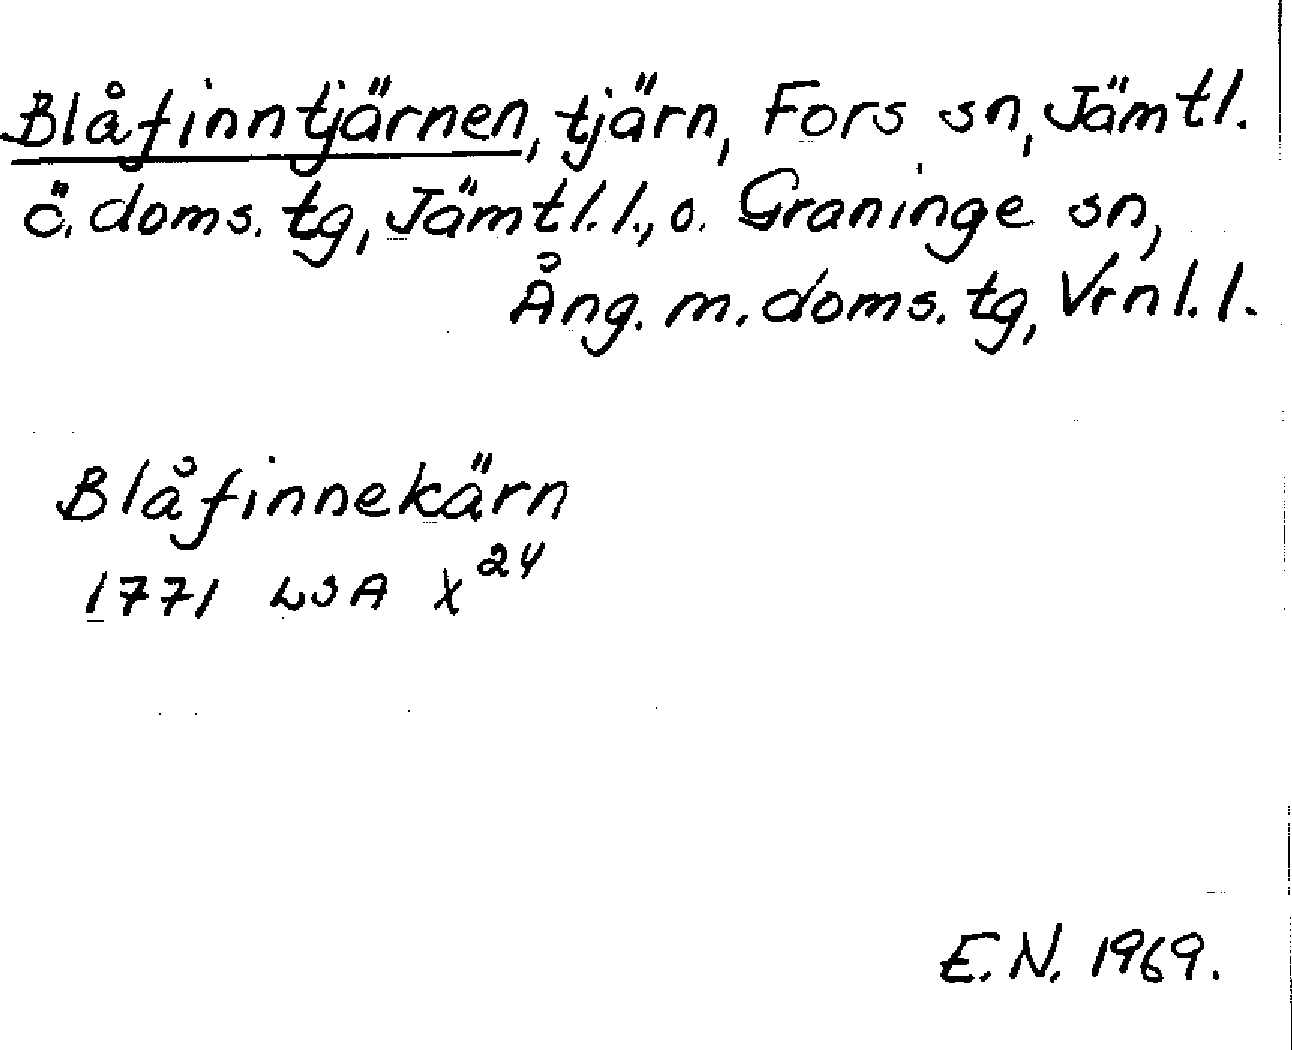 Blåfinntjärnen, tjärn, Fors sn, Jämtl.
ö. doms. tg, Jämtl. l., o. Graninge sn,
Ång. m. doms. tg, Vrnl. l.
Blåfinnekärn
1771 LSA X²⁴
E.N. 1969.